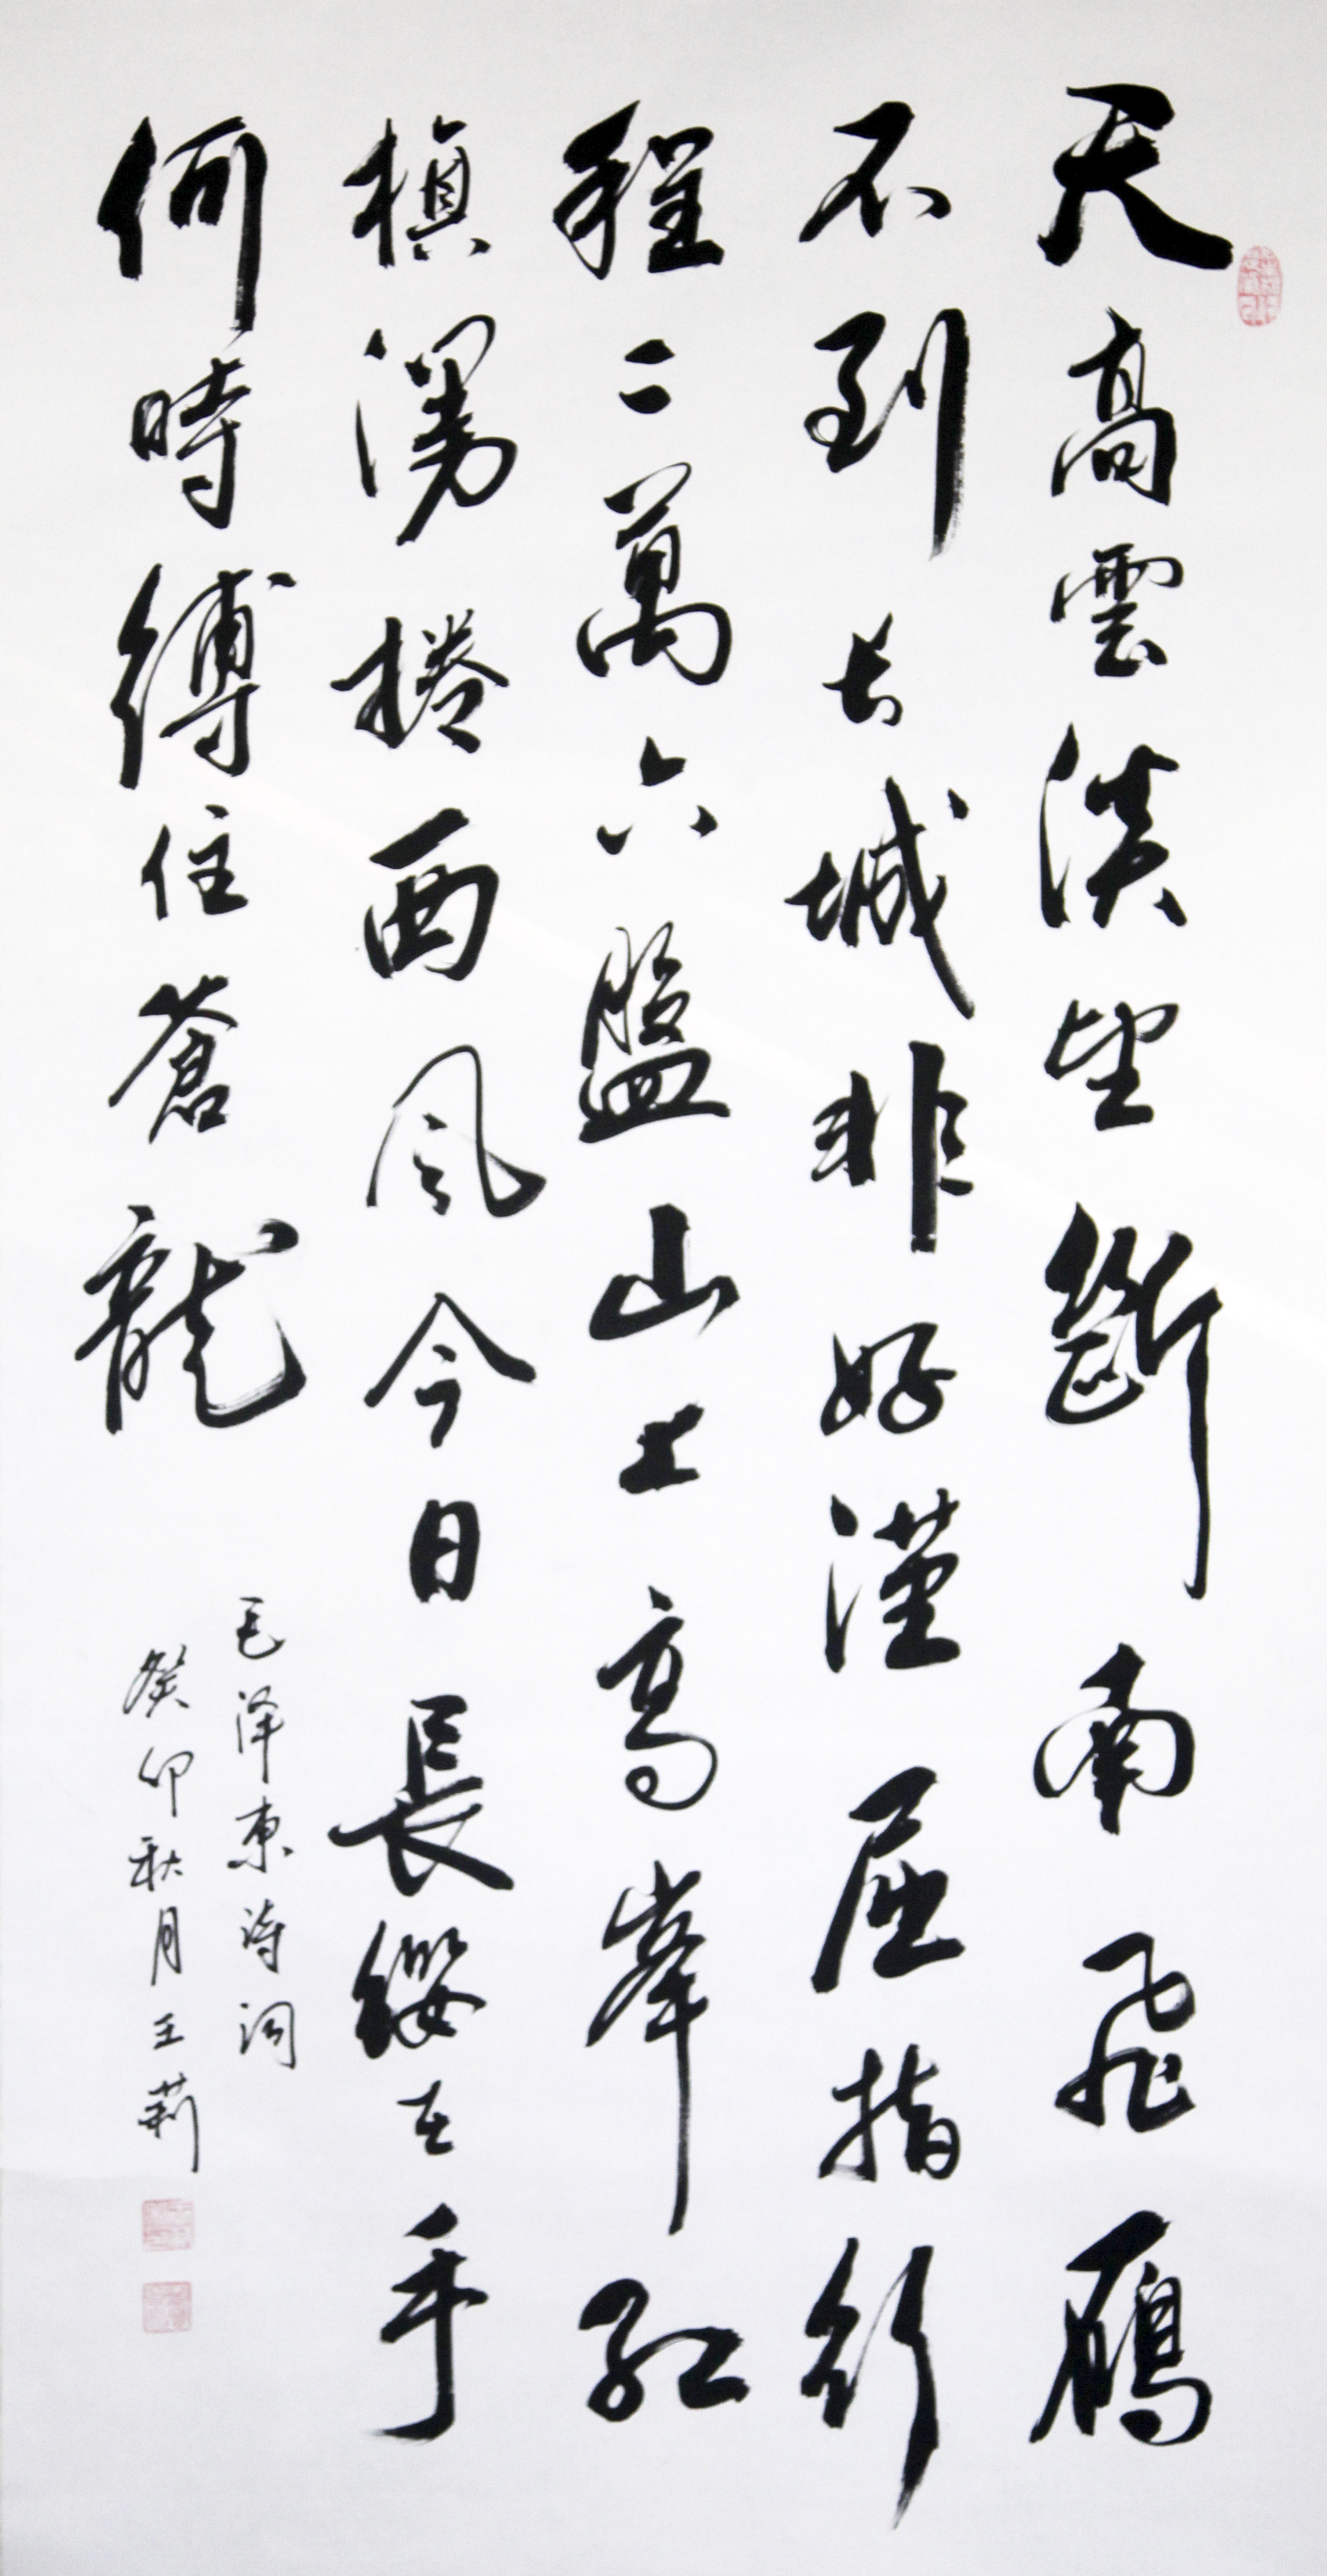 天高雲淡望斷南飛鴈
不到长城非好漢屈指行
程二萬六盤山上高峯红
槙漫捲西风今日長纓在手
何時縛住蒼龍
毛泽东诗词
癸卯秋月王莉